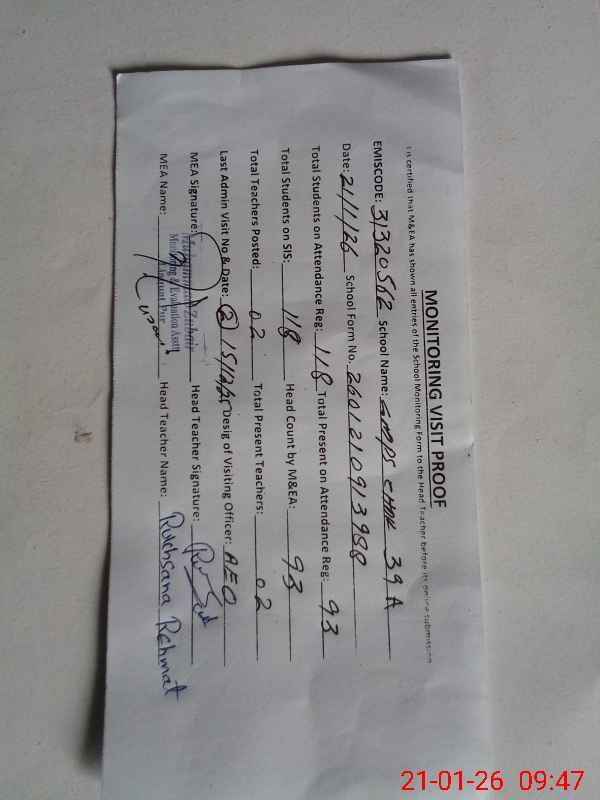 MONITORING VISIT PROOF
t is certified that M&EA has shown all entries of the School Monitoring Form to the Head Teacher before its online submission
EMISCODE: 31320512 School Name: GMPS CHAK 39 A
Date: 21/1/26 School Form No. 2601210913988
Total Students on Attendance Reg: 118 Total Present on Attendance Reg: 93
Total Students on SIS: 118 Head Count by M&EA: 93
Total Teachers Posted: 02 Total Present Teachers: 02
Last Admin Visit No & Date: (2) 15/12/25 Desig of Visiting Officer: AEO
MEA Signature: Head Teacher Signature:
Monitoring & Evaluation Asstt
MEA Name: Head Teacher Name: Rukhsana Rehmat
21-01-26 09:47